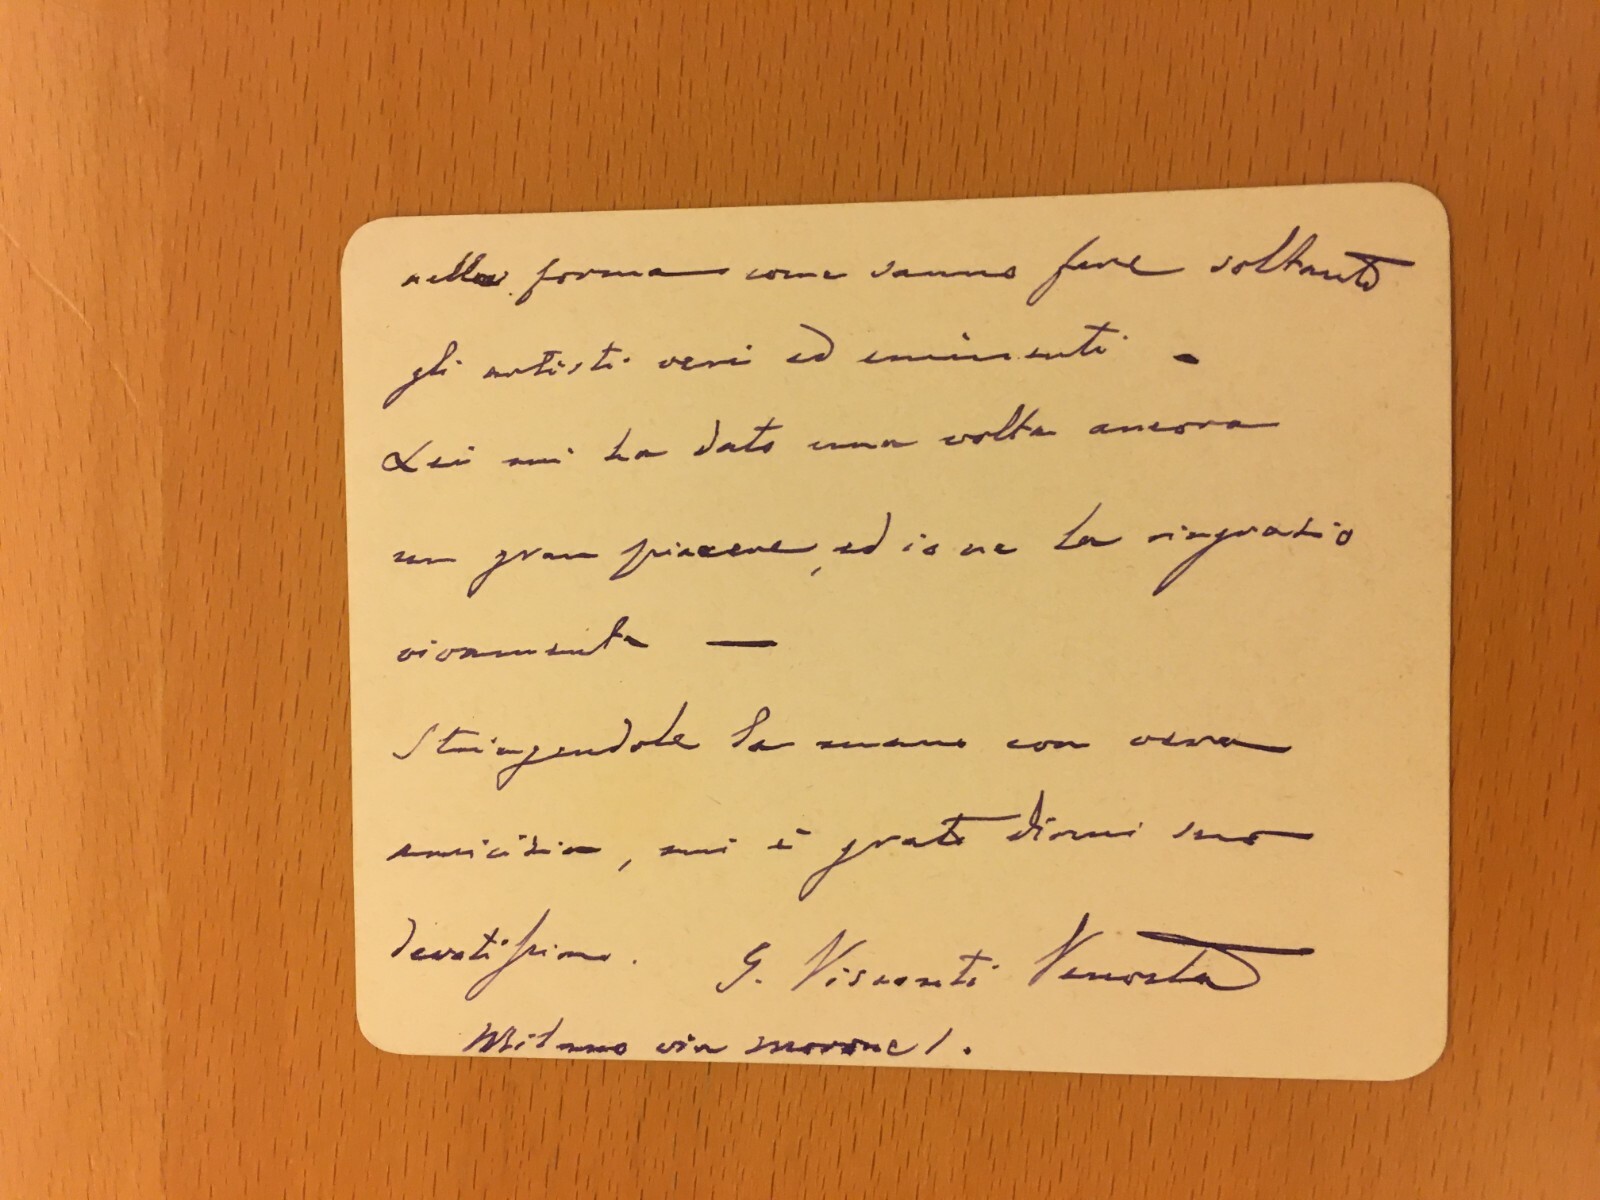 nella forma come sanno fare soltanto
gli artisti veri ed eminenti.
Lei mi ha dato una volta ancora
un gran piacere, ed io ne La ringrazio
vivamente —
Stringendole la mano con vera
amicizia, mi è grato dirmi suo
devotissimo. G. Visconti Venosta
Milano via Morone 1.